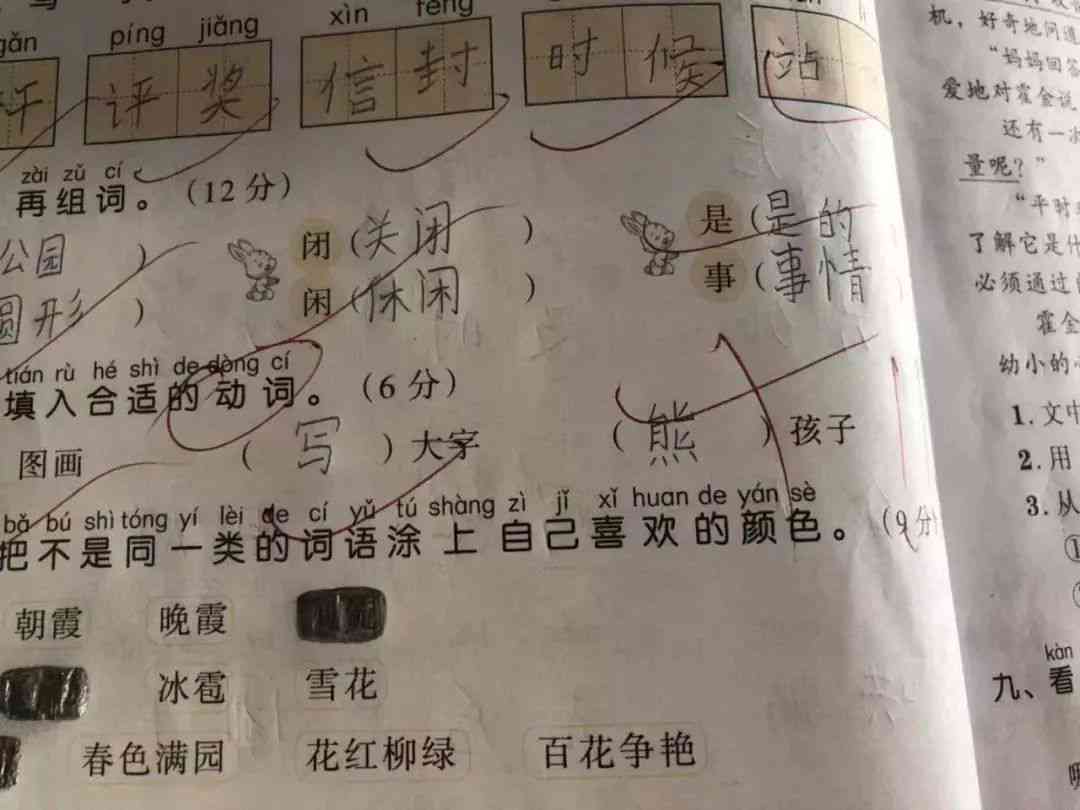 xìn fēng
píng jiǎng
评奖 信封 时候 站
zài zǔ cí
再组词。（12分）
公园） 闭（关闭） 是（是的
圆形） 闲（休闲） 事（事情
tián rù hé shì de dòng cí
填入合适的动词。（6分）
图画 （写）大字 （熊）孩子
bǎ bú shì tóng yí lèi de cí yǔ tú shàng zì jǐ xǐ huan de yán sè
把不是同一类的词语涂上自己喜欢的颜色。（9分）
朝霞 晚霞
冰雹 雪花
春色满园 花红柳绿 百花争艳
机，好奇地问道
“妈妈回答
爱地对霍金说
还有一次
量呢？”
“平时
了解它是什
必须通过
霍金
幼小的心
1.文中
2.用
3.从
①
kàn
九、看